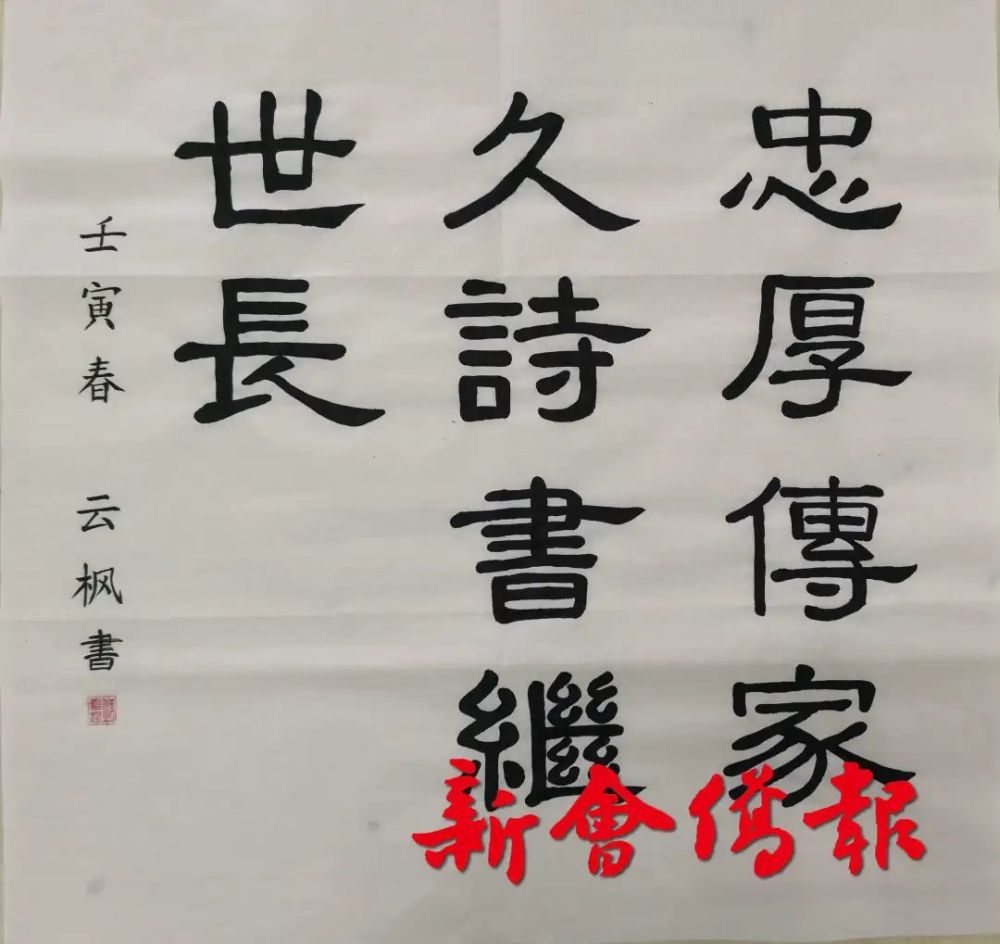 忠厚傳家
久詩書繼
世長
壬寅春 云枫書
新會僑報